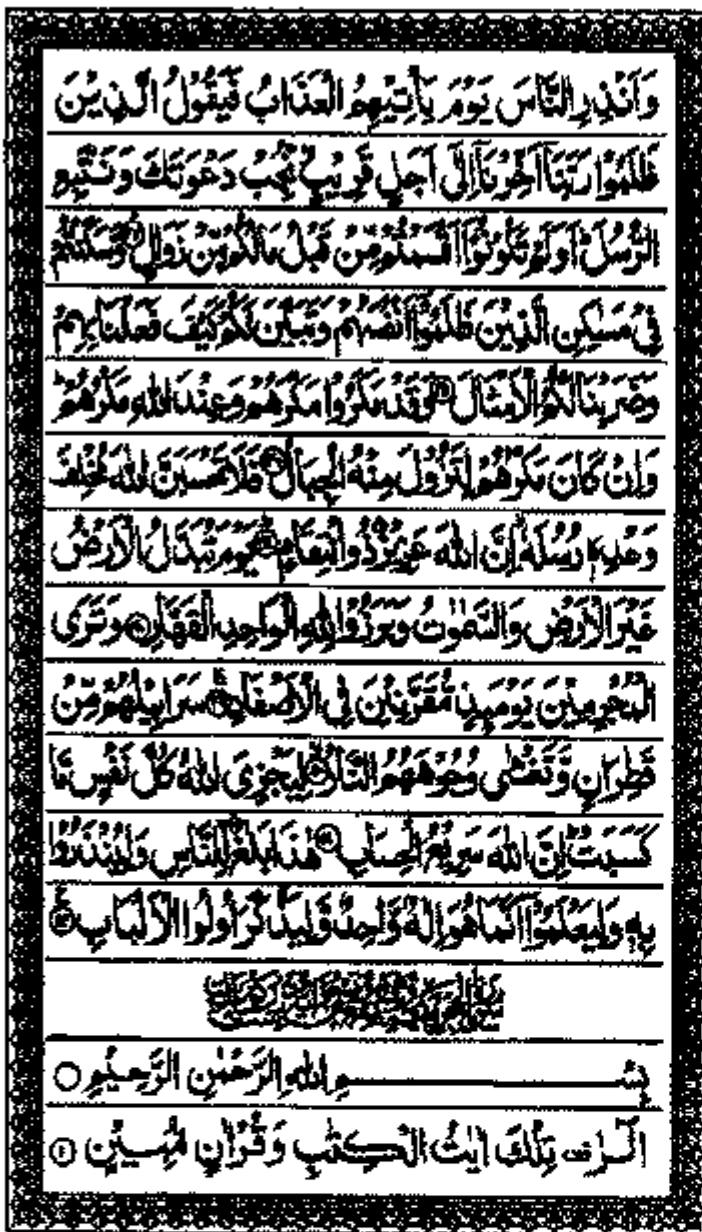 وَاَنْذِرِ النَّاسَ يَوْمَ يَاْتِيْهِمُ الْعَذَابُ فَيَقُوْلُ الَّذِيْنَ
ظَلَمُوْا رَبَّنَاۤ اَخِّرْنَاۤ اِلٰۤى اَجَلٍ قَرِيْبٍ نُّجِبْ دَعْوَتَكَ وَنَتَّبِعِ
الرُّسُلَ اَوَلَمْ تَكُوْنُوْۤا اَقْسَمْتُمْ مِّنْ قَبْلُ مَا لَكُمْ مِّنْ زَوَالٍ ۙ وَّسَكَنْتُمْ
فِيْ مَسٰكِنِ الَّذِيْنَ ظَلَمُوْۤا اَنْفُسَهُمْ وَتَبَيَّنَ لَكُمْ كَيْفَ فَعَلْنَا بِهِمْ
وَضَرَبْنَا لَكُمُ الْاَمْثَالَ وَقَدْ مَكَرُوْا مَكْرَهُمْ وَعِنْدَ اللّٰهِ مَكْرُهُمْ ؕ
وَاِنْ كَانَ مَكْرُهُمْ لِتَزُوْلَ مِنْهُ الْجِبَالُ فَلَا تَحْسَبَنَّ اللّٰهَ مُخْلِفَ
وَعْدِهٖ رُسُلَهٗ اِنَّ اللّٰهَ عَزِيْزٌ ذُو انْتِقَامٍ يَوْمَ تُبَدَّلُ الْاَرْضُ
غَيْرَ الْاَرْضِ وَالسَّمٰوٰتُ وَبَرَزُوْا لِلّٰهِ الْوَاحِدِ الْقَهَّارِ وَتَرَى
الْمُجْرِمِيْنَ يَوْمَىِٕذٍ مُّقَرَّنِيْنَ فِي الْاَصْفَادِ سَرَابِيْلُهُمْ مِّنْ
قَطِرَانٍ وَّتَغْشٰى وُجُوْهَهُمُ النَّارُ لِيَجْزِيَ اللّٰهُ كُلَّ نَفْسٍ مَّا
كَسَبَتْ اِنَّ اللّٰهَ سَرِيْعُ الْحِسَابِ هٰذَا بَلٰغٌ لِّلنَّاسِ وَلِيُنْذَرُوْا
بِهٖ وَلِيَعْلَمُوْۤا اَنَّمَا هُوَ اِلٰهٌ وَّاحِدٌ وَّلِيَذَّكَّرَ اُولُوا الْاَلْبَابِ
بِسْمِ اللّٰهِ الرَّحْمٰنِ الرَّحِيْمِ
الٓرٰ تِلْكَ اٰيٰتُ الْكِتٰبِ وَقُرْاٰنٍ مُّبِيْنٍ ①